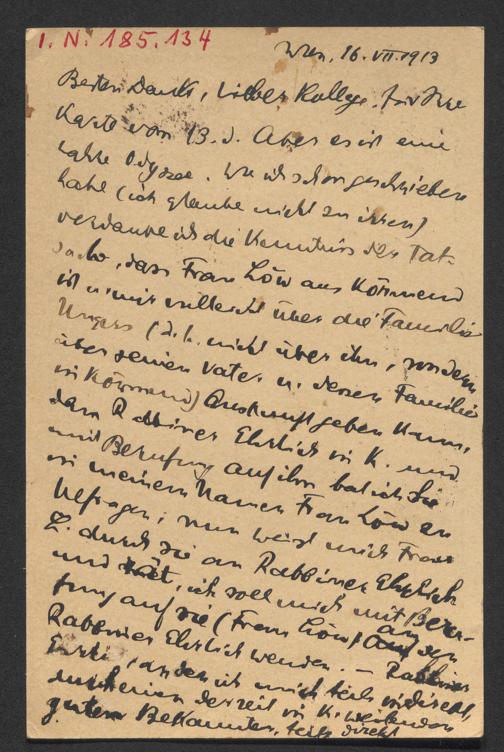 I. N. 185.134
Wien, 16. VII. 1913
Besten Dank, lieber Kollege, für Ihre
Karte vom 13. d. Aber es ist eine
wahre Odyssee. Wie ich schon geschrieben
habe (ich glaube nicht zu irren)
verdanke ich die Kenntnis der Tat-
sache, dass Frau Löw aus Körmend
ist u. mir vielleicht über die Familie
Ungers (d. h. nicht über ihn, sondern
über seinen Vater u. dessen Familie
in Körmend) Auskunft geben kann,
dem Rabbiner Ehrlich in K. und
mit Berufung auf ihn bat ich Sie
in meinem Namen Frau Löw zu
befragen; nun weist mich Frau
L. durch Sie an Rabbiner Ehrlich
und rät, ich soll mich mit Beru-
fung auf sie (Frau Löw) an den
Rabbiner Ehrlich wenden. – Rabbiner
Ehrlich, an den ich mich teils indirekt
durch einen derzeit in K. weilenden
guten Bekannten, teils direkt